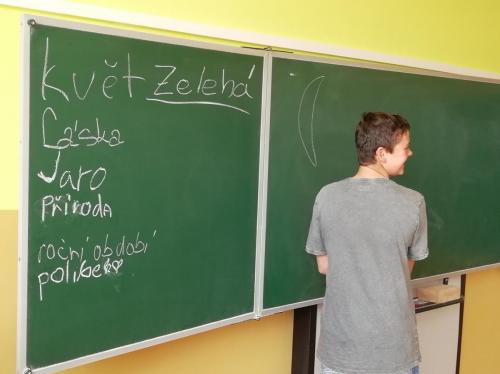 Květ Zelená
Láska
Jaro
PŘÍRODA
roční období
polibek